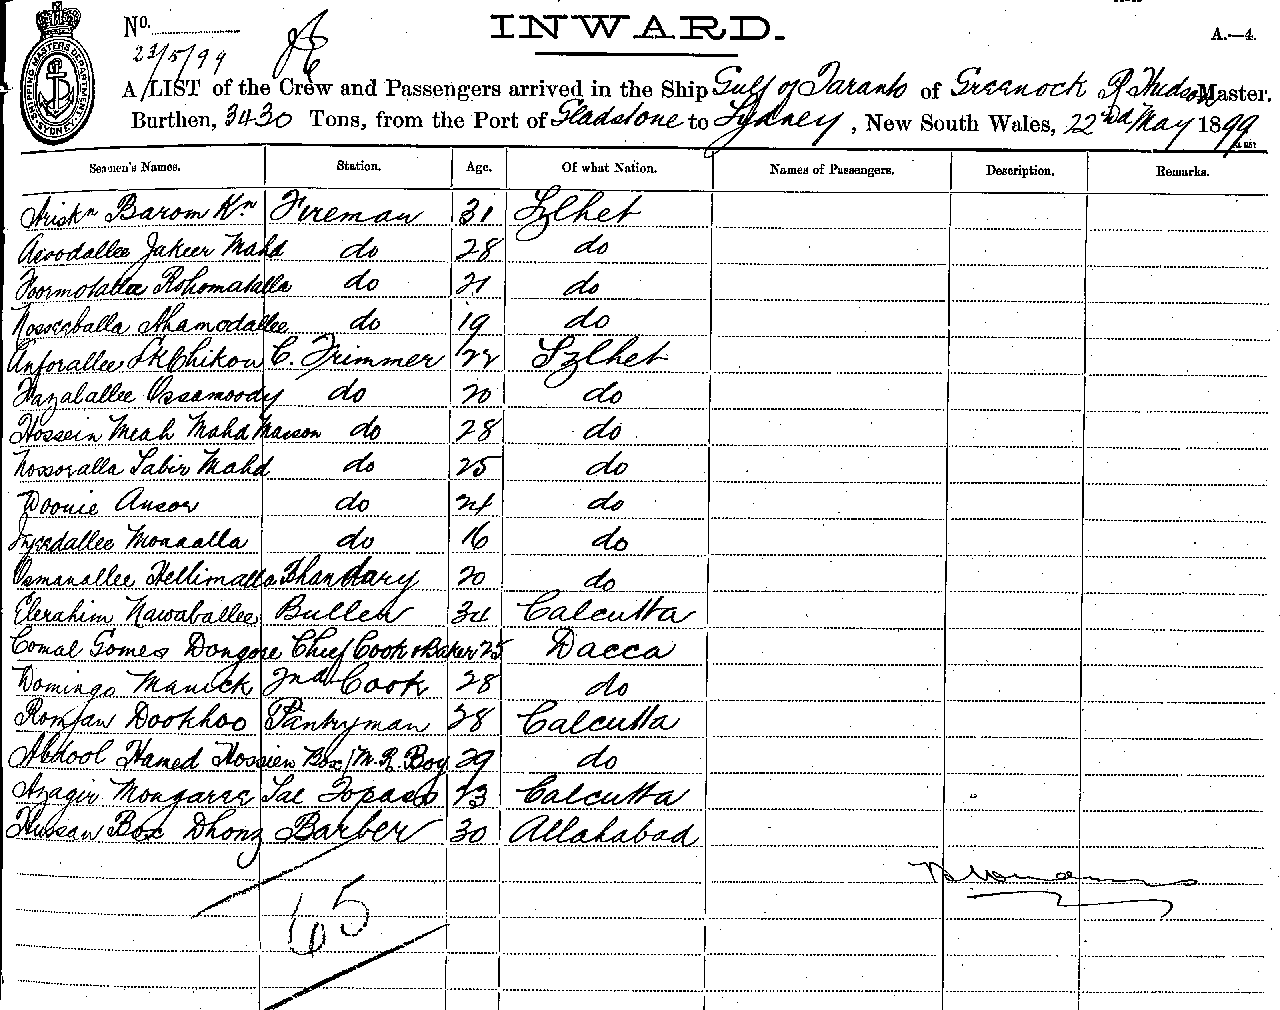 INWARD.
No.
A.—4.
23/5/99
SHIPPING MASTERS DEPARTMENT SYDNEY
A LIST of the Crew and Passengers arrived in the Ship Gulf of Taranto of Greenock R Hudson Master.
Burthen, 3430 Tons, from the Port of Gladstone to Sydney, New South Wales, 22nd May 1899
Seamen's Names. Station. Age. Of what Nation. Names of Passengers. Description. Remarks.
Barom Fireman 31 Szlhet
Asoodallee Jakeer Mahd do 28 do
Toormotallee Rohomatalla do 21 do
Nosseeballa Ahamodallee do 19 do
Anforallee Sk Chikon C. Trimmer 22 Szlhet
Fazalallee Ossamoody do 20 do
Hossein Meah Mahd Masson do 28 do
Nossoralla Sabir Mahd do 25 do
Doonie Ansor do 24 do
Monaalla do 16 do
Osmanallee Hellimalla Bhandary 20 do
Elerahim Nawaballee Butler 34 Calcutta
Comal Gomes Dongore Chief Cook & Baker 25 Dacca
Domingo Manick 2nd Cook 28 do
Romjan Dookhoo Pantryman 28 Calcutta
Abdool Hamed Hossien Box M. R. Boy 29 do
Azagir Mongaree Sae Topass 23 Calcutta
Hussan Box Dhony Barber 30 Allahabad
65